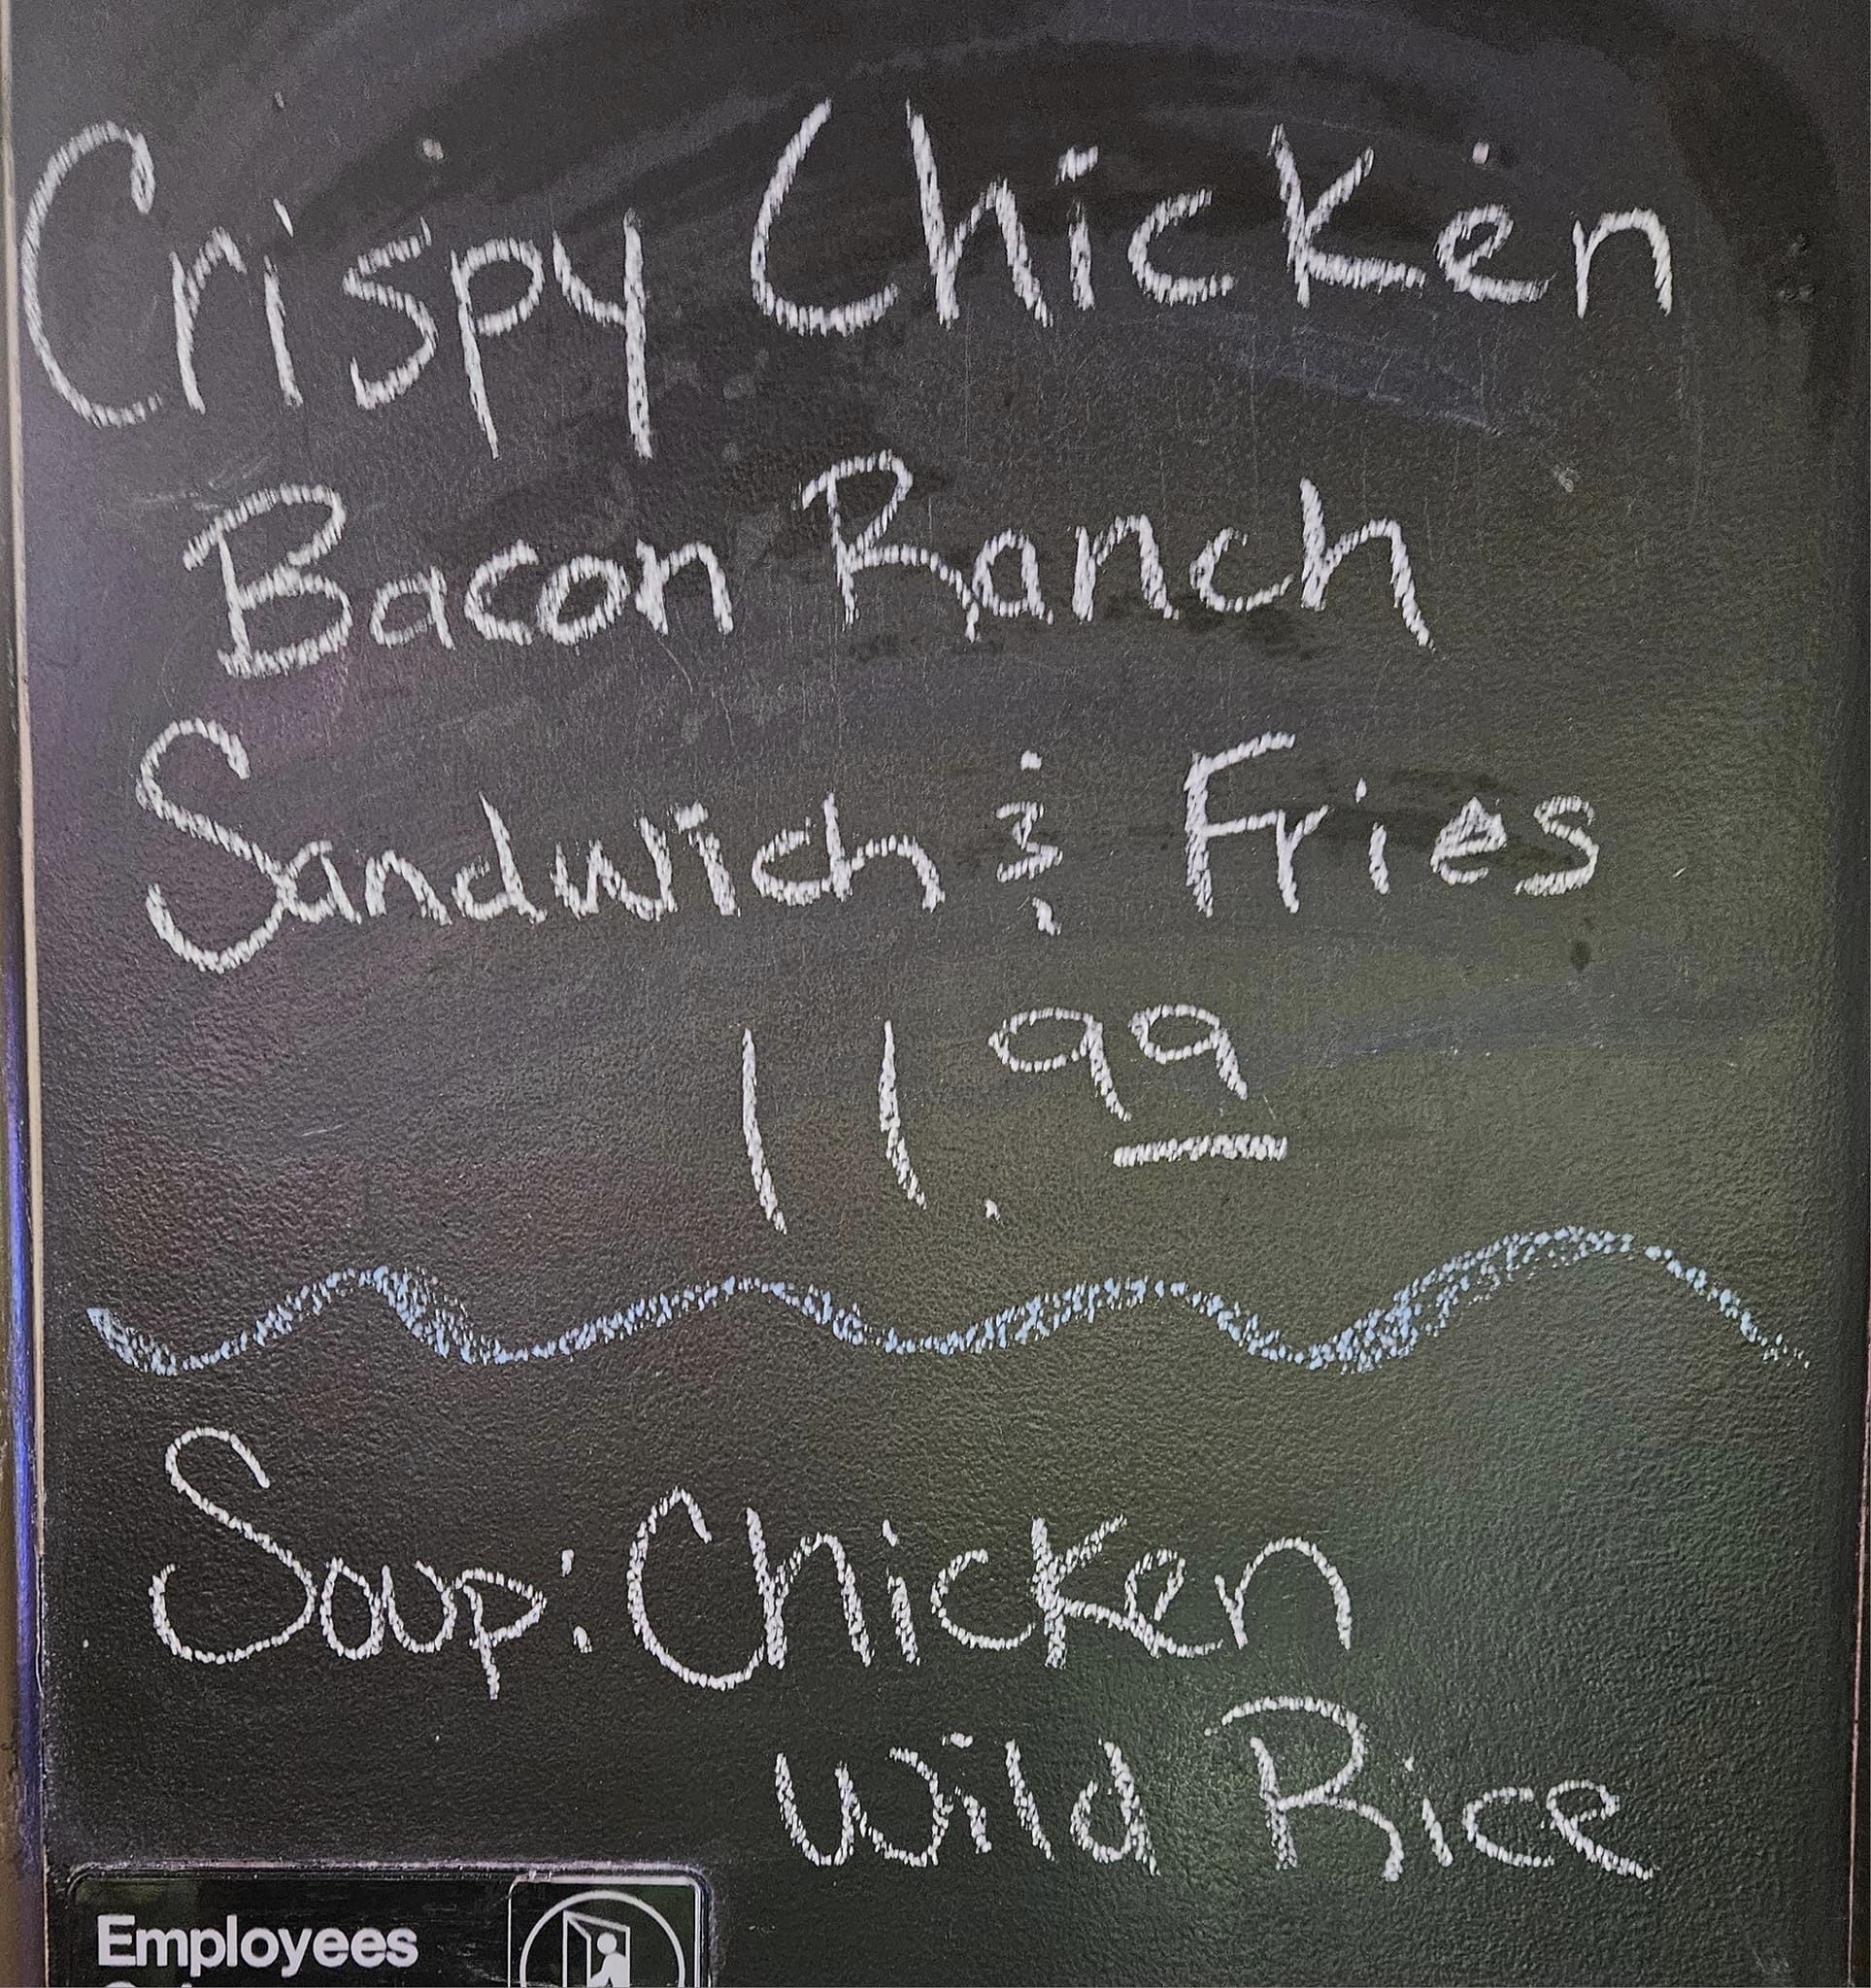 Crispy Chicken
Bacon Ranch
Sandwich & Fries
11.99
Soup: Chicken
Wild Rice
Employees